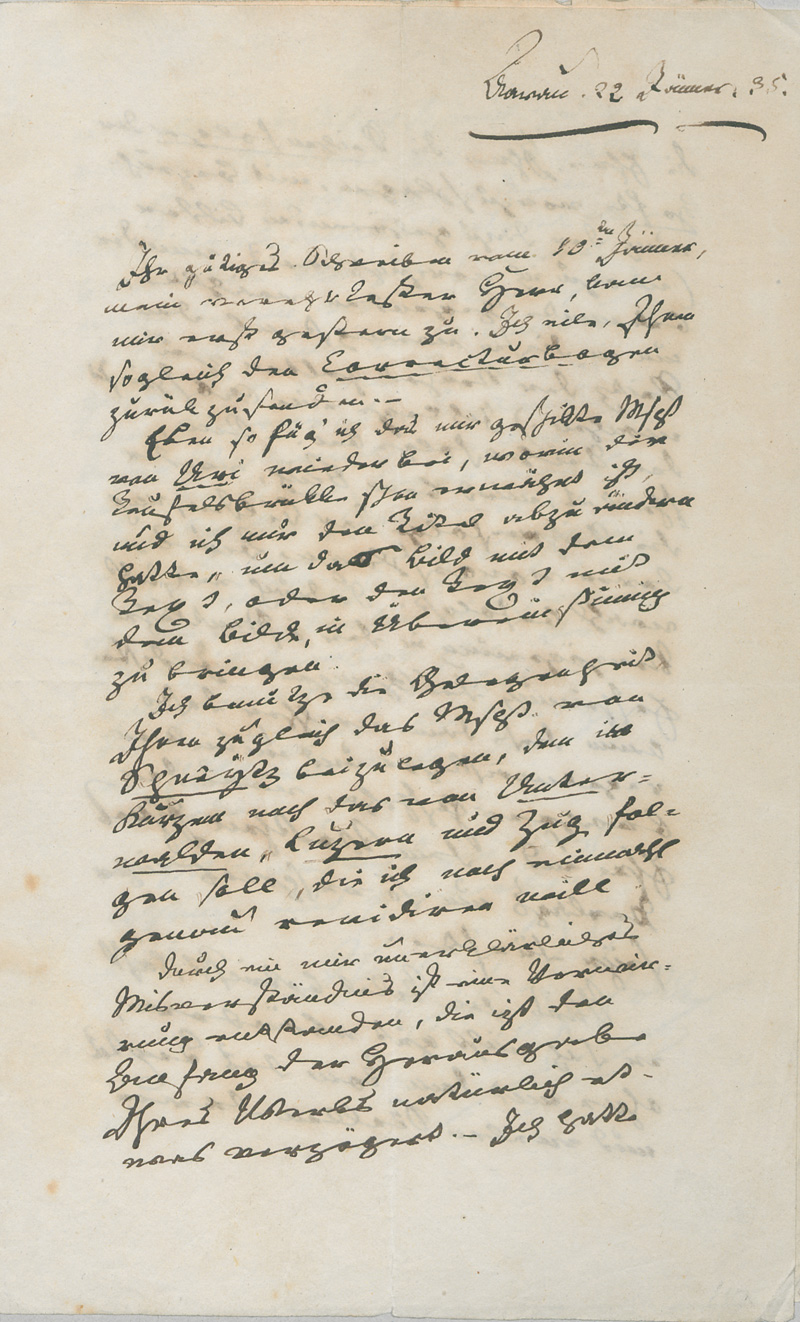 Aarau. 22 Jänner. 35.
Ihr gütiges Schreiben vom 10ten Jänner,
mein verehrtester Herr, kam
mir erst gestern zu. Ich eile, Ihnen
sogleich den Correcturbogen
zurük zu senden. –
Eben so füg' ich das mir geschikte Mscpt
von Uri wieder bei, worin der
Teufelsbrükke schon erwähnt ist,
und ich nur den Titel abzuändern
hatte, um das Bild mit dem
Text, oder den Text mit
dem Bilde, in Übereinstimmung
zu bringen.
Ich benutze die Gelegenheit
Ihnen zugleich das Mscpt. von
Schwytz beizulegen, dem in
Kurzem noch das von Unter-
walden, Luzern und Zug fol-
gen soll, die ich noch einmahl
genau revidiren will
Durch ein mir unerklärliches
Misverständnis ist eine Verwir-
rung entstanden, die izt den
Anfang der Herausgabe
Ihres Werks natürlich et-
was verzögert. – Ich hatte